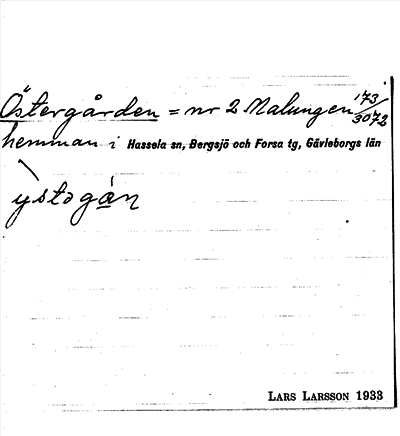 Östergården = nr 2 Malungen 173/3072
hemman i Hassela sn, Bergsjö och Forsa tg, Gävleborgs län
ystogán
LARS LARSSON 1933